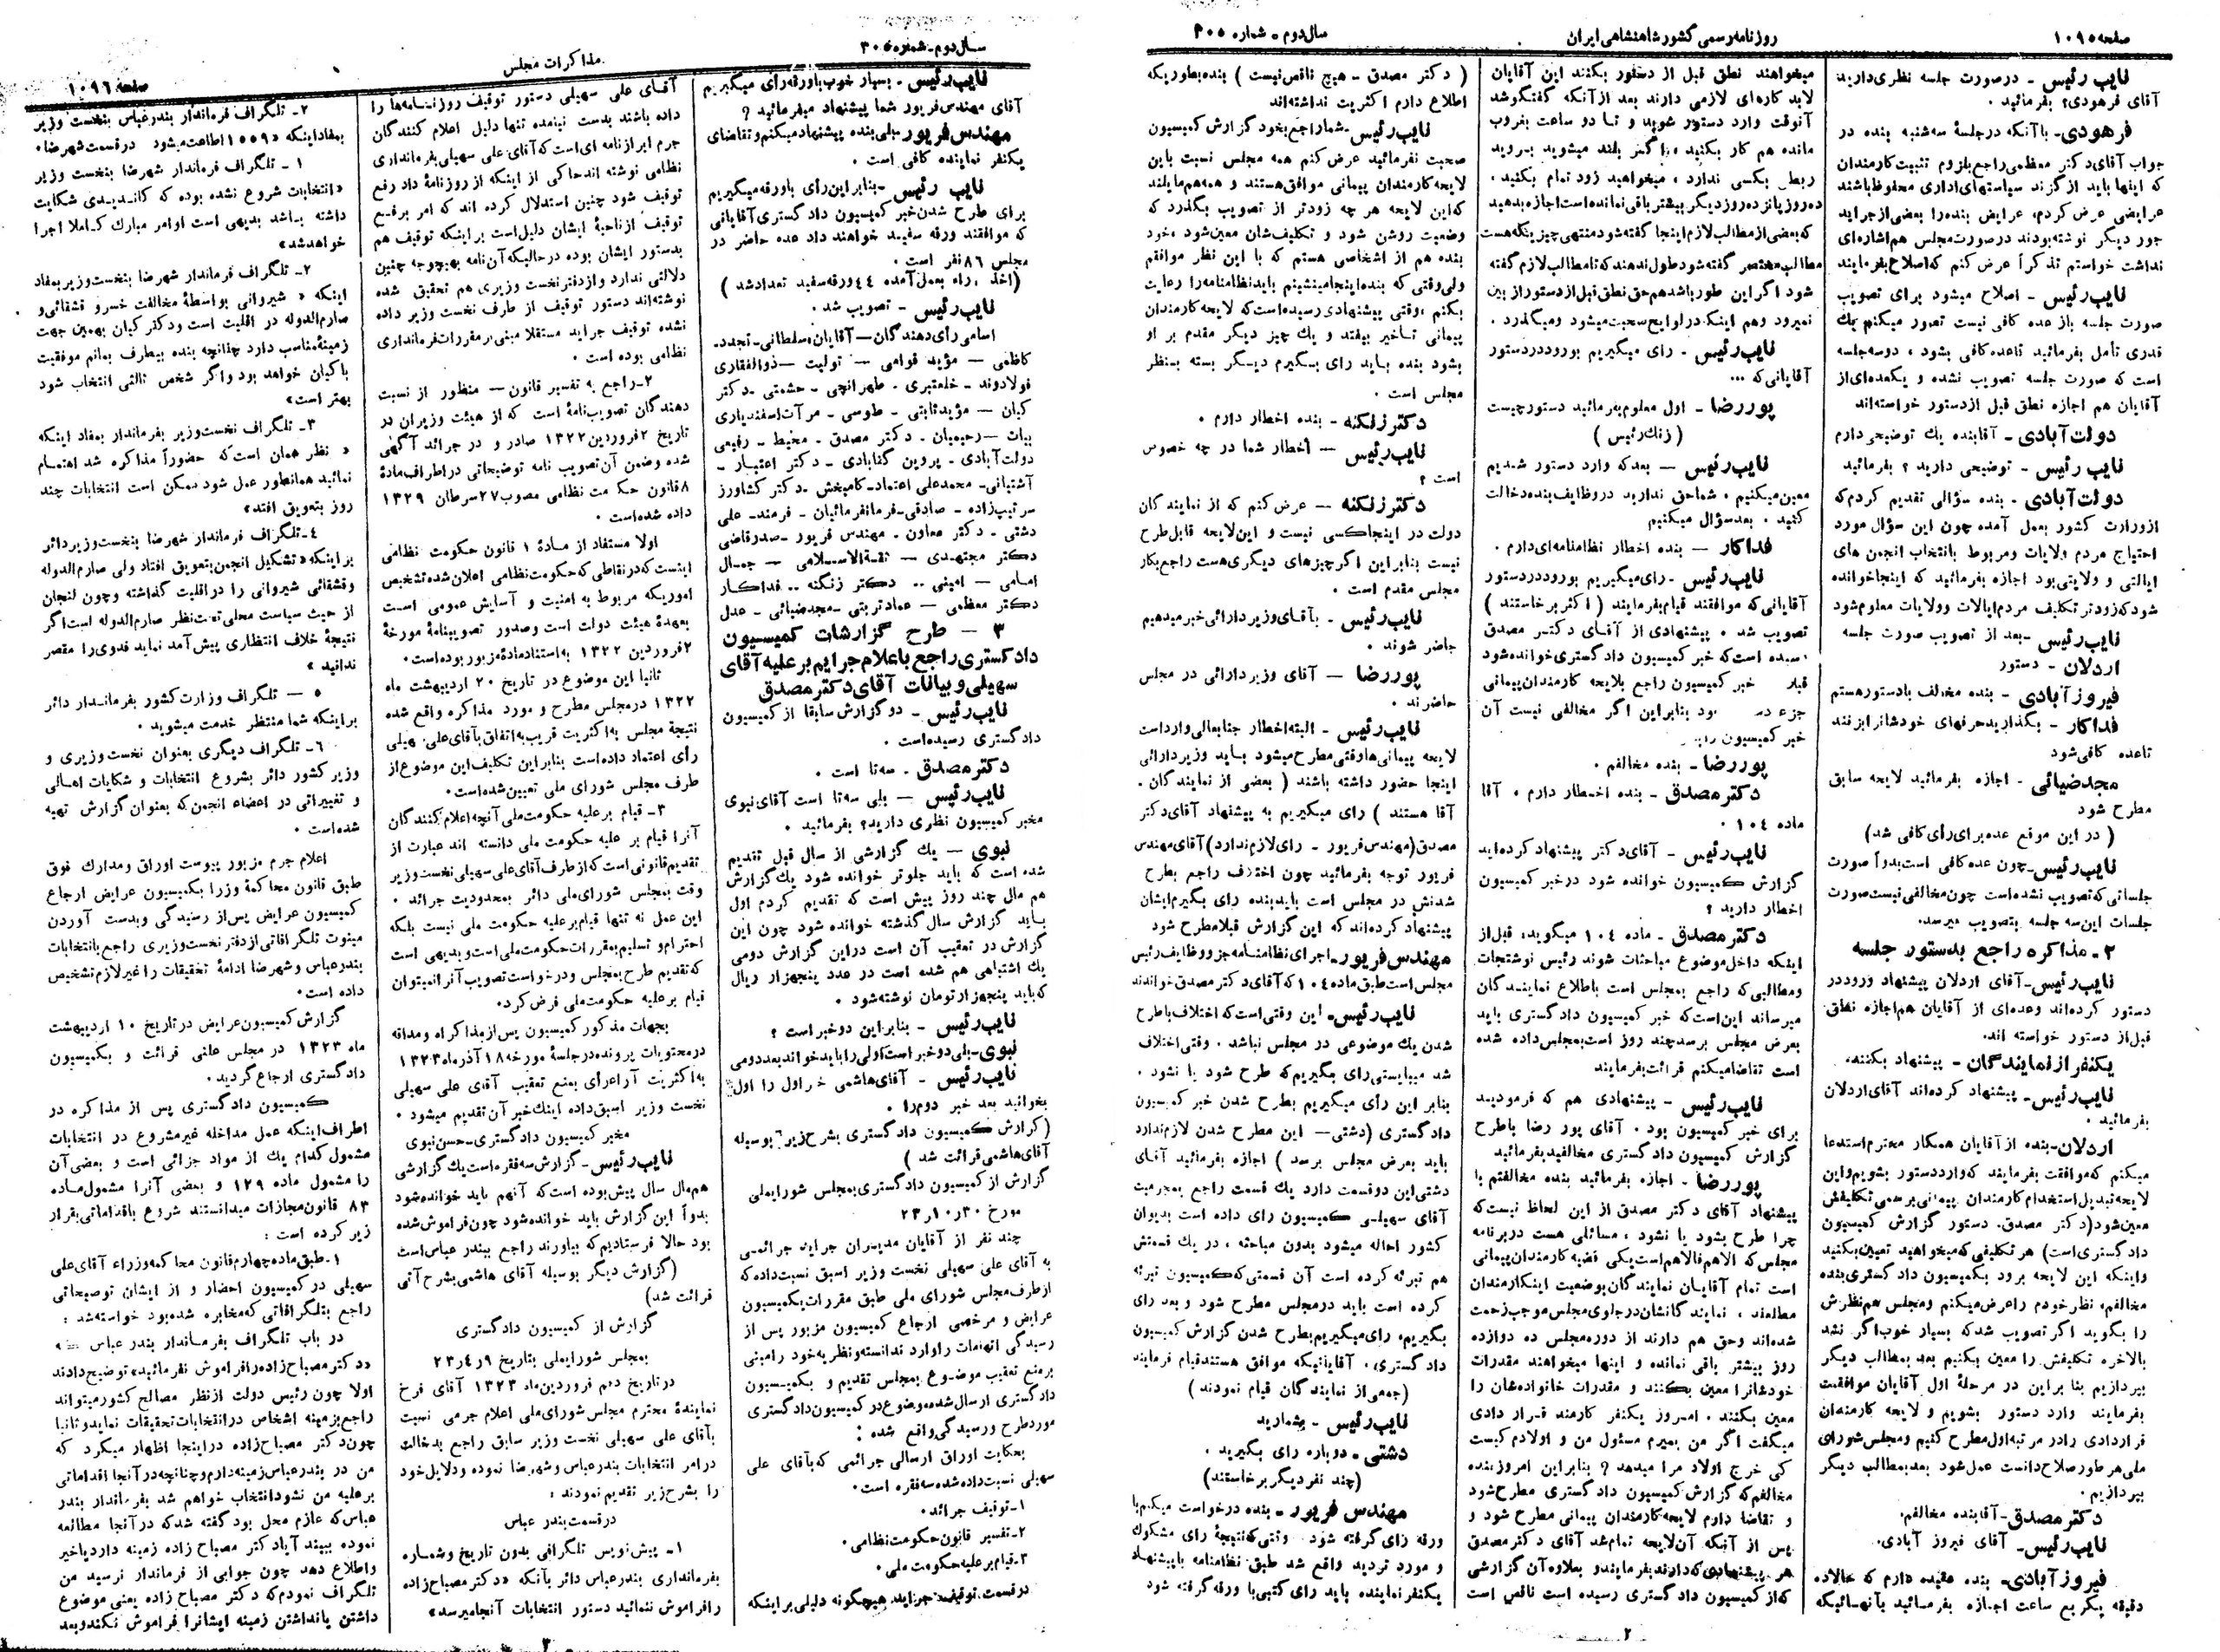 صفحه ۱۰۹۵
روزنامه رسمی کشور شاهنشاهی ایران
سال دوم - شماره ۳۰۵
نایب رئیس - در صورت جلسه نظری دارید
آقای فرهودی؟ بفرمائید .
فرهودی- با آنکه در جلسهٔ سه شنبه بنده در
جواب آقای دکتر معظمی راجع بلزوم تثبیت کارمندان
که اینها باید از گزند سیاستهای اداری محفوظ باشند
عرایضی عرض کردم، عرایض بنده را بعضی از جراید
جور دیگر نوشته بودند در صورت مجلس هم اشاره‌ای
نداشت خواستم تذکراً عرض کنم که اصلاح بفرمایند
نایب رئیس - اصلاح میشود برای تصویب
صورت جلسه باز عده کافی نیست تصور میکنم یک
قدری تأمل بفرمائید تا عده کافی بشود ، دوسه جلسه
است که صورت جلسه تصویب نشده و یکعده‌ای از
آقایان هم اجازه نطق قبل از دستور خواسته‌اند
دولت آبادی - آقا بنده یک توضیحی دارم
نایب رئیس - توضیحی دارید ؟ بفرمائید
دولت آبادی - بنده سؤالی تقدیم کردم که
از وزارت کشور بعمل آمده چون این سؤال مورد
احتیاج مردم ولایات و مربوط بانتخاب انجمن های
ایالتی و ولایتی بود اجازه بفرمائید که اینجا خوانده
شود که زودتر تکلیف مردم ایالات و ولایات معلوم شود
نایب رئیس - بعد از تصویب صورت جلسه
اردلان - دستور
فیروز آبادی - بنده مخالف با دستور هستم
فداکار - بگذارید حرفهای خودشانرا بزنند
تا عده کافی شود
مجد ضیائی - اجازه بفرمائید لایحه سابق
مطرح شود
( در این موقع عده برای رأی کافی شد )
نایب رئیس - چون عده کافی است بدواً صورت
جلساتی که تصویب نشده است چون مخالفی نیست صورت
جلسات این سه جلسه بتصویب میرسد.
۲ - مذاکره راجع بدستور جلسه
نایب رئیس - آقای اردلان پیشنهاد ورود در
دستور کرده‌اند و عده‌ای از آقایان هم اجازه نطق
قبل از دستور خواسته اند.
یکنفر از نمایندگان - پیشنهاد بکنند.
نایب رئیس - پیشنهاد کرده‌اند آقای اردلان
بفرمائید .
اردلان - بنده از آقایان همکار محترم استدعا
میکنم که موافقت بفرمایند که وارد دستور بشویم و این
لایحه تبدیل استخدام کارمندان پیمانی برسمی تکلیفش
معین شود (دکتر مصدق. دستور گزارش کمیسیون
دادگستری است) هر تکلیفی که میخواهید تعیین بکنید
و اینکه این لایحه برود بکمیسیون دادگستری بنده
مخالفم، نظر خودم را عرض میکنم و مجلس هم نظرش
را بگوید اگر تصویب شد که بسیار خوب اگر نشد
بالاخره تکلیفش را معین بکنیم بعد بمطالب دیگر
بپردازیم بنا براین در مرحلهٔ اول آقایان موافقت
بفرمایند وارد دستور بشویم و لایحه کارمندان
قراردادی را در مرتبه اول مطرح کنیم و مجلس شورای
ملی هر طور صلاح دانست عمل شود بعد بمطالب دیگر
بپردازیم .
دکتر مصدق - آقا بنده مخالفم.
نایب رئیس - آقای فیروز آبادی.
فیروز آبادی - بنده عقیده دارم که حالا ده
دقیقه یکربع ساعت اجازه بفرمائید بآنهائیکه
میخواهند نطق قبل از دستور بکنند این آقایان
لابد کاره‌ای لازمی دارند بعد از آنکه گفتگو شد
آنوقت وارد دستور شوید و تا دو ساعت بغروب
مانده هم کار بکنید ، اگر بلند میشوید بروید
ربطی بکسی ندارد ، میخواهید زود تمام بکنید ،
ده روز پانزده روز دیگر بیشتر باقی نمانده است اجازه بدهید
که بعضی از مطالب لازم اینجا گفته شود منتهی چیزیکه هست
مطالب مختصر گفته شود طول ندهند که تا مطالب لازم گفته
شود اگر این طور باشد هم حق نطق قبل از دستور از بین
نمیرود و هم اینکه در لوایح صحبت میشود و میگذرد .
نایب رئیس - رای میگیریم بورود در دستور
آقایانی که ...
پور رضا - اول معلوم بفرمائید دستور چیست
( زنگ رئیس )
نایب رئیس - بعد که وارد دستور شدیم
معین میکنیم ، شما حق ندارید در وظایف بنده دخالت
کنید ، بعد سؤال میکنیم
فداکار - بنده اخطار نظامنامه‌ای دارم .
نایب رئیس - رای میگیریم بورود در دستور
آقایانی که موافقند قیام بفرمایند ( اکثر برخاستند )
تصویب شد . پیشنهادی از آقای دکتر مصدق
رسیده است که خبر کمیسیون دادگستری خوانده شود
خبر کمیسیون راجع بلایحه کارمندان پیمانی
جزء بود بنابراین اگر مخالفی نیست آن
خبر کمیسیون را
پور رضا - بنده مخالفم .
دکتر مصدق - بنده اخطار دارم ، آقا
ماده ۱۰۴ .
نایب رئیس - آقای دکتر پیشنهاد کرده‌اید
گزارش کمیسیون خوانده شود در خبر کمیسیون
اخطار دارید ؟
دکتر مصدق - ماده ۱۰۴ میگوید: قبل از
اینکه داخل موضوع مباحثات شوند رئیس نوشتجات
و مطالبی که راجع بمجلس است باطلاع نمایندگان
میرساند این است که خبر کمیسیون دادگستری باید
بعرض مجلس برسد چند روز است بمجلس داده شده
است تقاضا میکنم قرائت بفرمایند
نایب رئیس - پیشنهادی هم که فرمودید
برای خبر کمیسیون بود . آقای پور رضا با طرح
گزارش کمیسیون دادگستری مخالفید بفرمائید
پور رضا - اجازه بفرمائید بنده مخالفتم با
پیشنهاد آقای دکتر مصدق از این لحاظ نیست که
چرا طرح بشود یا نشود ، مسائلی هست در برنامه
مجلس که الاهم فالاهم است یکی قضیه کارمندان پیمانی
است تمام آقایان نمایندگان بوضعیت اینکارمندان
مطلعند ، نمایندگانشان در جلوی مجلس موجب زحمت
شده‌اند وحق هم دارند از دوره مجلس ده دوازده
روز بیشتر باقی نمانده و اینها میخواهند مقدرات
خودشانرا معین بکنند و مقدرات خانواده‌شان را
معین بکنند . امروز یکنفر کارمند قرار دادی
میگفت اگر من بمیرم مسئول من و اولادم کیست
کی خرج اولاد مرا میدهد ؟ بنابراین امروز بنده
مخالفم که گزارش کمیسیون دادگستری مطرح شود
و تقاضا دارم لایحه کارمندان پیمانی مطرح شود و
پس از آنکه آن لایحه تمام شد آقای دکتر مصدق
هر پیشنهادی که دارند بفرمایند و بعلاوه آن گزارشی
که از کمیسیون دادگستری رسیده است ناقص است
( دکتر مصدق - هیچ ناقص نیست ) بنده بطوریکه
اطلاع دارم اکثریت نداشته‌اند
نایب رئیس - شما راجع بخود گزارش کمیسیون
صحبت نفرمائید عرض کنم همه مجلس نسبت باین
لایحه کارمندان پیمانی موافق هستند و همه هم مایلند
که این لایحه هر چه زودتر از تصویب بگذرد که
وضعیت روشن شود و تکلیفشان معین شود ، خود
بنده هم از اشخاصی هستم که با این نظر موافقم
ولی وقتی که بنده اینجا مینشینم باید نظامنامه را رعایت
بکنم ، وقتی پیشنهادی رسیده است که لایحه کارمندان
پیمانی تأخیر بیفتد و یک چیز دیگر مقدم بر او
بشود بنده باید رای بگیرم دیگر بسته بنظر
مجلس است .
دکتر زنگنه - بنده اخطار دارم .
نایب رئیس - أخطار شما در چه خصوص
است ؟
دکتر زنگنه - عرض کنم که از نمایندگان
دولت در اینجا کسی نیست و این لایحه قابل طرح
نیست بنابراین اگر چیزهای دیگری هست راجع بکار
مجلس مقدم است .
نایب رئیس - بآقای وزیر دارائی خبر میدهیم
حاضر شوند .
پور رضا - آقای وزیر دارائی در مجلس
حاضرند .
نایب رئیس - البته اخطار جنابعالی وارد است
لایحه پیمانی ها وقتی مطرح میشود باید وزیر دارائی
اینجا حضور داشته باشند ( بعضی از نمایندگان .
آقا هستند ) رای میگیریم به پیشنهاد آقای دکتر
مصدق (مهندس فریور - رای لازم ندارد) آقای مهندس
فریور توجه بفرمائید چون اختلاف راجع بطرح
شدنش در مجلس است باید بنده رای بگیرم ایشان
پیشنهاد کرده‌اند که این گزارش قبلا مطرح شود
مهندس فریور - اجرای نظامنامه جزو وظایف رئیس
مجلس است طبق ماده ۱۰۴ که آقای دکتر مصدق خواندند
نایب رئیس - این وقتی است که اختلاف با طرح
شدن یک موضوعی در مجلس نباشد . وقتی اختلاف
شد میبایستی رای بگیریم که طرح شود یا نشود .
بنابر این رأی میگیریم بطرح شدن خبر کمیسیون
دادگستری (دشتی - این مطرح شدن لازم ندارد
باید بعرض مجلس برسد ) اجازه بفرمائید آقای
دشتی این دو قسمت دارد یک قسمت راجع بمجرمیت
آقای سهیلی کمیسیون رای داده است بدیوان
کشور احاله میشود بدون مباحثه ، در یک قسمتش
هم تبرئه کرده است آن قسمتی که کمیسیون تبرئه
کرده است باید در مجلس مطرح شود و بعد رای
بگیریم، رای میگیریم بطرح شدن گزارش کمیسیون
دادگستری ، آقایانیکه موافق هستند قیام فرمایند
(جمعی از نمایندگان قیام نمودند )
نایب رئیس - بشمارید
دشتی - دوباره رای بگیرید .
(چند نفر دیگر برخاستند)
مهندس فریور - بنده درخواست میکنم با
ورقه رأی گرفته شود . وقتی که نتیجهٔ رای مشکوک
و مورد تردید واقع شد طبق نظامنامه با پیشنهاد
یکنفر نماینده باید رای کتبی با ورقه گرفته شود
۲
سال دوم - شماره ۳۰۵
مذاکرات مجلس
صفحه ۱۰۹۶
نایب رئیس - بسیار خوب با ورقه رأی میگیریم
آقای مهندس فریور شما پیشنهاد میفرمائید ؟
مهندس فریور - بلی بنده پیشنهاد میکنم و تقاضای
یکنفر نماینده کافی است .
نایب رئیس - بنابراین رأی با ورقه میگیریم
برای طرح شدن خبر کمیسیون دادگستری آقایانی
که موافقند ورقه سفید خواهند داد عده حاضر در
مجلس ۸۶ نفر است .
(اخذ راء بعمل آمده ۴۴ ورقه سفید تعداد شد )
نایب رئیس - تصویب شد .
اسامی رأی دهندگان - آقایان: سلطانی - تجدد-
کاظمی - مؤید قوامی - تولیت - ذوالفقاری
فولادوند - خلعتبری - طهرانچی - حشمتی - دکتر
کیان - مؤید ثابتی - طوسی - مرآت اسفندیاری
بیات - رحیمیان - دکتر مصدق - مخیط - رفیعی
دولت آبادی - پروین گنابادی - دکتر اعتبار -
آشتیانی - محمد علی اعتماد - کامبخش - دکتر کشاورز
سرتیپ زاده - صادقی - فرمانفرمائیان - فرمند - علی
دشتی - دکتر معاون - مهندس فریور - صدر قاضی
دکتر مجتهدی - ثقة الاسلامی - جمال
امامی - امینی - دکتر زنگنه - فداکار
دکتر معظمی - عماد تربتی - مجد ضیائی - عدل
۳ - طرح گزارشات کمیسیون
دادگستری راجع باعلام جرایم بر علیه آقای
سهیلی و بیانات آقای دکتر مصدق
نایب رئیس - دو گزارش سابقا از کمیسیون
دادگستری رسیده است .
دکتر مصدق - سه تا است .
نایب رئیس - بلی سه تا است آقای نبوی
مخبر کمیسیون نظری دارید؟ بفرمائید .
نبوی - یک گزارشی از سال قبل تقدیم
شده است که باید جلوتر خوانده شود یک گزارش
هم مال چند روز پیش است که تقدیم کردم اول
باید گزارش سال گذشته خوانده شود چون این
گزارش در تعقیب آن است در این گزارش دومی
یک اشتباهی هم شده است در عدد پنجهزار ریال
که باید پنجهزار تومان نوشته شود .
نایب رئیس - بنابر این دو خبر است ؟
نبوی - بلی دو خبر است اولی را باید خواند بعد دومی
نایب رئیس - آقای هاشمی خبر اول را اول
بخوانید بعد خبر دوم را .
(گزارش کمیسیون دادگستری بشرح زیر بوسیله
آقای هاشمی قرائت شد )
گزارش از کمیسیون دادگستری بمجلس شورایملی
مورخ ۲۳ر۱۰ر۳۰
چند نفر از آقایان مدیران جراید جرائمی
به آقای علی سهیلی نخست وزیر اسبق نسبت داده که
از طرف مجلس شورای ملی طبق مقررات بکمیسیون
عرایض و مرخصی ارجاع کمیسیون مزبور پس از
رسیدگی اتهامات را وارد ندانسته و نظریه خود را مبنی
بر منع تعقیب موضوع بمجلس تقدیم و بکمیسیون
دادگستری ارسال شده موضوع در کمیسیون دادگستری
مورد طرح و رسیدگی واقع شده :
بحکایت اوراق ارسالی جرائمی که بآقای علی
سهیلی نسبت داده شده سه فقره است.
۱- توقیف جرائد .
۲- تفسیر قانون حکومت نظامی .
۳- قیام بر علیه حکومت ملی .
در قسمت توقیف جراید هیچگونه دلیلی بر اینکه
آقای علی سهیلی دستور توقیف روزنامه‌ها را
داده باشند بدست نیامده تنها دلیل اعلام کنندگان
جرم ابراز نامه ای است که آقای علی سهیلی بفرمانداری
نظامی نوشته اند حاکی از اینکه از روزنامهٔ داد رفع
توقیف شود چنین استدلال کرده اند که امر برفع
توقیف از ناحیهٔ ایشان دلیل است بر اینکه توقیف هم
بدستور ایشان بوده در حالیکه آن نامه بهیچوجه چنین
دلالتی ندارد و از دفتر نخست وزیری هم تحقیق شده
نوشته‌اند دستور توقیف از طرف نخست وزیر داده
نشده توقیف جراید مستقلا مبنی بر مقررات فرمانداری
نظامی بوده است .
۲- راجع به تفسیر قانون - منظور از نسبت
دهندگان تصویب نامهٔ است که از هیئت وزیران در
تاریخ ۲ فروردین ۱۳۲۲ صادر و در جرائد آگهی
شده و ضمن آن تصویب نامه توضیحاتی در اطراف مادهٔ
۸ قانون حکومت نظامی مصوب ۲۷ سرطان ۱۳۲۹
داده شده است .
اولا مستفاد از مادهٔ ۱ قانون حکومت نظامی
اینست که در نقاطی که حکومت نظامی اعلان شده تشخیص
اموریکه مربوط به امنیت و آسایش عمومی است
بعهدهٔ هیئت دولت است وصدور تصویبنامهٔ مورخهٔ
۲ فروردین ۱۳۲۲ به استناد مادهٔ مزبور بوده است.
ثانیا این موضوع در تاریخ ۲۰ اردیبهشت ماه
۱۳۲۲ در مجلس مطرح و مورد مذاکره واقع شده
نتیجهٔ مجلس به اکثریت قریب به اتفاق بآقای علی سهیلی
رأی اعتماد داده است بنابر این تکلیف این موضوع از
طرف مجلس شورای ملی تعیین شده است .
۳- قیام بر علیه حکومت ملی آنچه اعلام کنندگان
آنرا قیام بر علیه حکومت ملی دانسته اند عبارت از
تقدیم قانونی است که از طرف آقای علی سهیلی نخست وزیر
وقت بمجلس شورای ملی دائر بمحدودیت جرائد .
این عمل نه تنها قیام بر علیه حکومت ملی نیست بلکه
احترام و تسلیم بمقررات حکومت ملی است و بدیهی است
که تقدیم طرح بمجلس و درخواست تصویب آنرا نمیتوان
قیام بر علیه حکومت ملی فرض کرد.
بجهات مذکور کمیسیون پس از مذاکراه و مداقه
در محتویات پرونده در جلسهٔ مورخه ۱۸ آذر ماه ۱۳۲۳
به اکثریت آراء رأی بمنع تعقیب آقای علی سهیلی
نخست وزیر اسبق داده اینک خبر آن تقدیم میشود .
مخبر کمیسیون دادگستری - حسن نبوی
نایب رئیس - گزارش سه فقره است یک گزارشی
هم مال سال پیش بوده است که آنهم باید خوانده شود
بدواً این گزارش باید خوانده شود چون فراموش شده
بود حالا فرستادیم که بیاورند راجع ببندر عباس است
(گزارش دیگر بوسیله آقای هاشمی بشرح آتی
قرائت شد)
گزارش از کمیسیون دادگستری
بمجلس شورایملی بتاریخ ۲۳ر۴ر۹
در تاریخ دهم فروردین ماه ۱۳۲۳ آقای فرخ
نمایندهٔ محترم مجلس شورای ملی اعلام جرمی نسبت
بآقای علی سهیلی نخست وزیر سابق راجع بدخالت
در امر انتخابات بندرعباس و شهرضا نموده و دلایل خود
را بشرح زیر تقدیم نمودند :
در قسمت بندر عباس
۱- پیش نویس تلگرافی بدون تاریخ و شماره
بفرمانداری بندرعباس دائر بآنکه «دکتر مصباح زاده
را فراموش ننمائید دستور انتخابات آنجا میرسد»
۲- تلگراف فرماندار بندرعباس بنخست وزیر
بمفاد اینکه « ۱۵۵۹ اطاعت میشود در قسمت شهرضا.
۱ - تلگراف فرماندار شهرضا بنخست وزیر
«انتخابات شروع نشده بوده که کاندیدی شکایت
داشته باشد بدیهی است اوامر مبارک کاملا اجرا
خواهد شد»
۲- تلگراف فرماندار شهرضا بنخست وزیر بمفاد
اینکه « شیروانی بواسطهٔ مخالفت خسرو قشقائی و
صارم الدوله در اقلیت است و دکتر کیان بهمین جهت
زمینهٔ مناسب دارد چنانچه بنده بیطرف بمانم موفقیت
با کیان خواهد بود و اگر شخص ثالثی انتخاب شود
بهتر است»
۳- تلگراف نخست وزیر بفرماندار بمفاد اینکه
« نظر همان است که حضوراً مذاکره شد اهتمام
نمائید همانطور عمل شود ممکن است انتخابات چند
روز بتعویق افتد»
۴- تلگراف فرماندار شهرضا بنخست وزیر دائر
بر اینکه «تشکیل انجمن بتعویق افتاد ولی صارم الدوله
و قشقائی شیروانی را در اقلیت گذاشته و چون لنجان
از حیث سیاست محلی تحت نظر صارم الدوله است اگر
نتیجهٔ خلاف انتظاری پیش آمد نماید فدوی را مقصر
ندانید »
۵ - تلگراف وزارت کشور بفرماندار دائر
بر اینکه شما منتظر خدمت میشوید .
۶- تلگراف دیگری بعنوان نخست وزیری و
وزیر کشور دائر بشروع انتخابات و شکایات اهالی
و تغییراتی در اعضاء انجمن که بعنوان گزارش تهیه
شده است .
اعلام جرم مزبور بپیوست اوراق و مدارک فوق
طبق قانون محاکمهٔ وزرا بکمیسیون عرایض ارجاع
کمیسیون عرایض پس از رسیدگی و بدست آوردن
مینوت تلگرافاتی از دفتر نخست وزیری راجع بانتخابات
بندر عباس و شهرضا ادامهٔ تحقیقات را غیر لازم تشخیص
داده است.
گزارش کمیسیون عرایض در تاریخ ۱۰ اردیبهشت
ماه ۱۳۲۳ در مجلس علنی قرائت و بکمیسیون
دادگستری ارجاع گردید .
کمیسیون دادگستری پس از مذاکره در
اطراف اینکه عمل مداخله غیر مشروع در انتخابات
مشمول کدام یک از مواد جزائی است و بعضی آن
را مشمول ماده ۱۲۹ و بعضی آنرا مشمول ماده
۸۳ قانون مجازات میدانستند شروع باقداماتی بقرار
زیر کرده است :
۱- طبق ماده چهارم قانون محاکمه وزراء آقای علی
سهیلی در کمیسیون احضار و از ایشان توضیحاتی
راجع بتلگرافاتی که مخابره شده بود خواسته شد :
در باب تلگراف بفرماندار بندر عباس که
«دکتر مصباح زاده را فراموش نفرمائید» توضیح دادند
اولا چون رئیس دولت از نظر مصالح کشور میتواند
راجع بزمینه اشخاص در انتخابات تحقیقات نماید و ثانیا
چون دکتر مصباح زاده در اینجا اظهار میکرد که
من در بندر عباس زمینه دارم و چنانچه در آنجا اقداماتی
بر علیه من نشود انتخاب خواهم شد بفرماندار بندر
عباس که عازم محل بود گفته شد که در آنجا مطالعه
نموده ببیند آیا دکتر مصباح زاده زمینه دارد یا خیر
و اطلاع دهد چون جوابی از فرماندار نرسید من
تلگراف نمودم که دکتر مصباح زاده یعنی موضوع
داشتن یا نداشتن زمینه ایشانرا فراموش نکند و بعد
۳